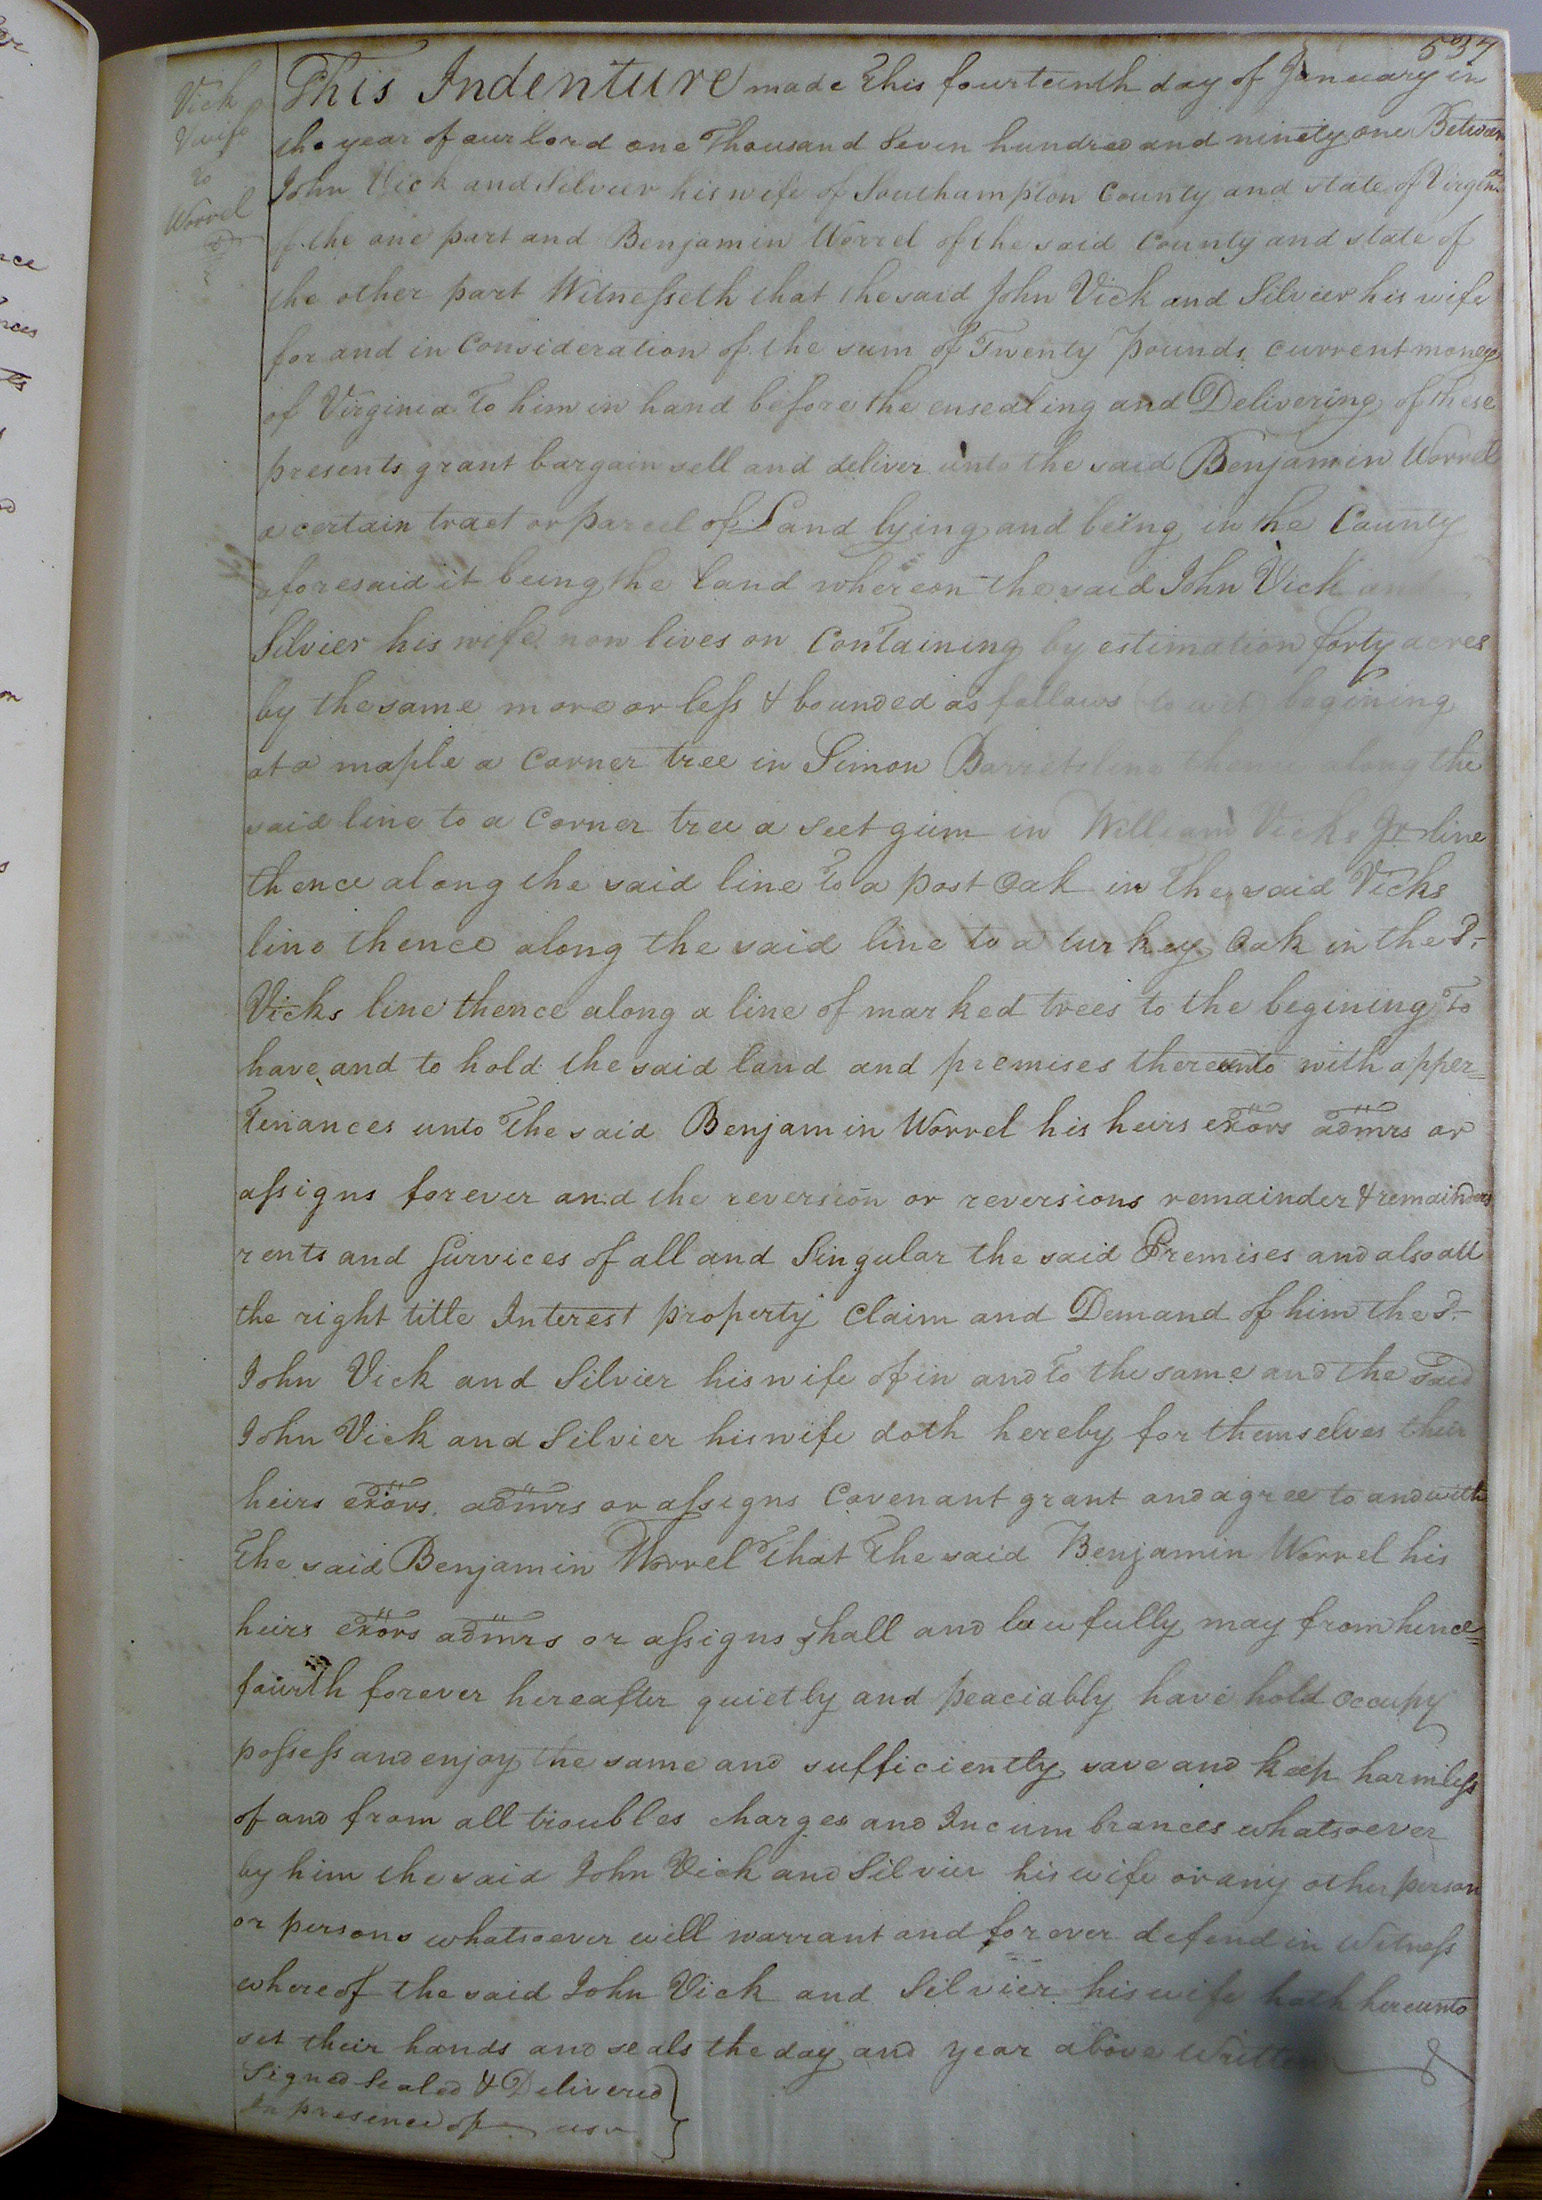 537
Vick
& wife
to
Worrel
This Indenture made this fourteenth day of January in
the year of our lord one Thousand Seven hundred and ninety one Between
John Vick and Silvier his wife of Southampton County and state of Virginia
of the one part and Benjamin Worrel of the said County and state of
the other part Witnesseth that the said John Vick and Silvier his wife
for and in Consideration of the sum of Twenty pounds current money
of Virginia To him in hand before the ensealing and Delivering of these
presents grant bargain sell and deliver unto the said Benjamin Worrel
a certain tract or parcel of Land lying and being in the County
aforesaid it being the land whereon the said John Vick and
Silvier his wife now lives on Containing by estimation forty acres
by the same more or less & bounded as follows (to wit) begining
at a maple a Corner tree in Simon Barrets line thence along the
said line to a Corner tree a seet gum in William Vicks Jr line
thence along the said line to a post Oak in the said Vicks
line thence along the said line to a turkey Oak in the sd.
Vicks line thence along a line of marked trees to the begining To
have and to hold the said land and premises thereunto with apper=
tenances unto the said Benjamin Worrel his heirs exors admrs or
assigns forever and the reversion or reversions remainder & remainders
rents and survices of all and Singular the said Premises and also all
the right title Interest property Claim and Demand of him the sd.
John Vick and Silvier his wife of in and to the same and the said
John Vick and Silvier his wife doth hereby for themselves their
heirs exors. admrs or assigns Covenant grant and agree to and with
the said Benjamin Worrel that the said Benjamin Worrel his
heirs exors admrs or assigns shall and lawfully may from hence=
fourth forever hereafter quietly and peaciably have hold occupy
possess and enjoy the same and sufficiently save and keep harmless
of and from all troubles charges and Incumbrances whatsoever
by him the said John Vick and Silvier his wife or any other person
or persons whatsoever will warrant and forever defend in Witness
whereof the said John Vick and Silvier his wife hath hereunto
set their hands and seals the day and year above Written
Signed Sealed & Delivered
In presence of us